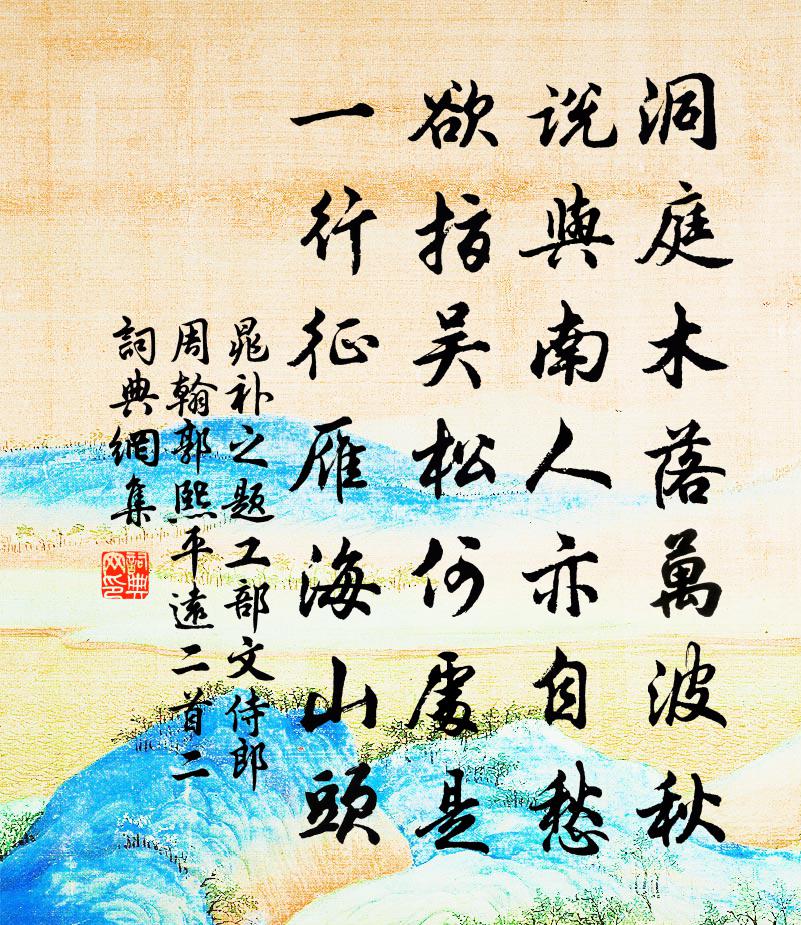 洞庭木落萬波秋
說與南人亦自愁
欲指吴松何處是
一行征雁海山頭
晁补之题工部文侍郎
周翰郭熙平遠二首二
詞典網集
詞典
网印